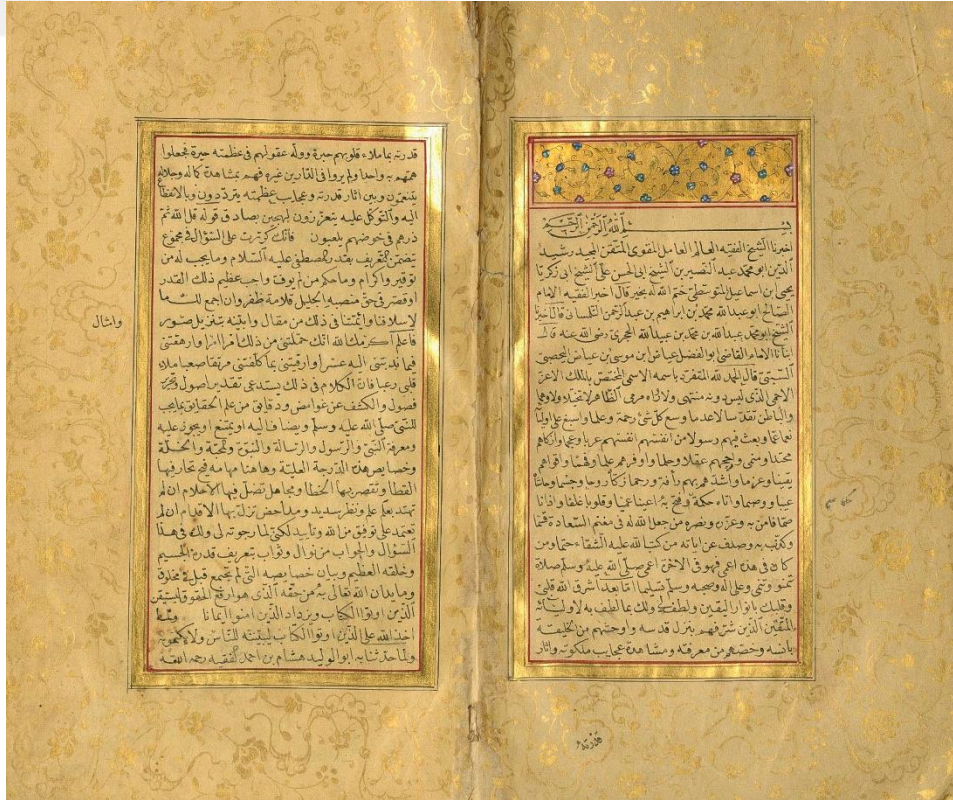 بسم الله الرحمن الرحيم
اخبرنا الشيخ الفقيه العالم العامل المقوى المتقن المجيد رشيد
الدين ابو محمد عبد النصير بن الشيخ ابى الحسن على الشيخ ابى زكريا
يحيى ابن اسماعيل المتوسطى ختم الله له بخير قال اخبر الفقيه الامام
الصالح ابو عبدالله محمد بن ابراهيم بن عبدالرحمن التلمسانى قال
الشيخ ابو محمد عبدالله بن محمد بن عبيدالله الحجرى رضى الله عنه قال
انبأنا الامام القاضى ابو الفضل عياض ابن موسى بن عياض اليحصبى
السبتى قال الحمد لله المتفرد باسمه الاسمى المختص بالملك الاعز
الاحمى الذى ليس دونه منتهى ولا وراه مرمى الظاهر لا تخيلا ولا وهما
والباطن تقدسا لا عدما وسع كل شئ رحمة وعلما واسبغ على اوليائه
نعما عما وبعث فيهم رسولا من انفسهم انفسهم عربا وعجما وازكاهم
محتدا ومنمى وارجحهم عقلا وحلما واوفرهم علما وفهما واقواهم
يقينا وعزما واشدهم بهم رأفة ورحما زكاه روحا وجسما وحاشاه
عيبا ووصما واتاه حكمة وحكما وفتح به اعينا عميا وقلوبا غلفا واذانا
صما فامن به وعزره ونصره من جعل الله له فى مغنم السعادة قسما
وكذب به وصدف عن اياته من كتب الله عليه الشقاء حتما ومن
كان فى هذه اعمى فهو فى الاخرة اعمى صلى الله عليه وسلم صلاة
تنمو وتنمى وعلى اله وصحبه وسلم تسليما اما بعد اشرق الله قلبى
وقلبك بانوار اليقين ولطف لى ولك بما لطف به لاوليائه
المتقين الذين شرفهم بنزل قدسه واوحشهم من الخليقة
بانسه وخصهم من معرفته ومشاهدة عجايب ملكوته واثار
قدرته
قدرته بما ملاء قلوبهم حبرة ووله عقولهم فى عظمته حيرة فجعلوا
همهم به واحدا ولم يروا فى الدارين غيره فهم بمشاهدة كماله وجلاله
يتنعمون وبين اثار قدرته وعجايب عظمته يترددون وبالانقطاع
اليه والتوكل عليه يتعززون لهجين بصادق قوله قل الله ثم
ذرهم فى خوضهم يلعبون فانك كررت على السؤال فى مجموع
يتضمن التعريف بقدر المصطفى عليه السلام وما يجب له من
توقير واكرام وما حكم من لم يوف واجب عظيم ذلك القدر
او قصر فى حق منصبه الجليل قلامة ظفر وان اجمع لك ما
لاسلافنا وائمتنا فى ذلك من مقال وابينه بتنزيل صور
وامثال
فاعلم اكرمك الله انك حملتنى من ذلك امرا امرا وارهقتنى
فيما ندبتنى اليه عسرا وارقيتنى بما كلفتنى مرتقا صعبا ملاء
قلبى رعبا فان الكلام فى ذلك يستدعى تقدير اصول وتحرير
فصول والكشف عن غوامض ودقايق من علم الحقايق مما يجب
للنبى صلى الله عليه وسلم ويضاف اليه او يمتنع او يجوز عليه
ومعرفة النبى والرسول والرسالة والنبوة والمحبة والخلة
وخصايص هذه الدرجة العلية وهاهنا مهامه فيح تحار فيها
القطا وتقصر بها الخطا ومجاهل تضل فيها الاحلام ان لم
تهتد بعلم علم ونظر سديد ومداحض تزل بها الاقدام ان لم
تعتمد على توفيق من الله وتأييد لكنى لما رجوته لى ولك فى هذا
السؤال والجواب من نوال وثواب بتعريف قدره الجسيم
وخلقه العظيم وبيان خصايصه التى لم تجتمع قبل فى مخلوق
وما يدان الله تعالى به من حقه الذى هو ارفع الحقوق ليستيقن
الذين اوتوا الكتاب ويزداد الذين امنوا ايمانا
اخذ الله على الذين اوتوا الكتاب ليبيننه للناس ولا يكتمونه
ولما حدثنا به ابو الوليد هشام بن احمد الفقيه رحمه الله